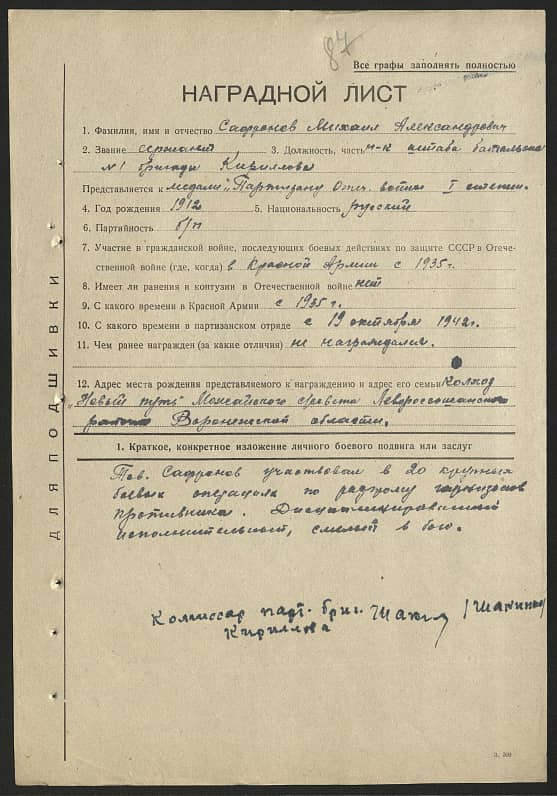 87
Все графы заполнять полностью
НАГРАДНОЙ ЛИСТ
1. Фамилия, имя и отчество Сафронов Михаил Александрович
2. Звание сержант 3. Должность, часть н-к штаба батальона
№1 бригады Кириллова
Представляется к медали "Партизану Отеч. войны" I степени.
4. Год рождения 1912 5. Национальность русский
6. Партийность б/п
7. Участие в гражданской войне, последующих боевых действиях по защите СССР в Отече-
ственной войне (где, когда) в Красной Армии с 1935 г.
8. Имеет ли ранения и контузии в Отечественной войне нет
9. С какого времени в Красной Армии с 1935 г.
10. С какого времени в партизанском отряде с 19 октября 1942 г.
11. Чем ранее награжден (за какие отличия) не награждался.
12. Адрес места рождения представляемого к награждению и адрес его семьи колхоз
"Новый путь" с/совета
района Воронежской области.
1. Краткое, конкретное изложение личного боевого подвига или заслуг
Тов. Сафронов участвовал в 20 крупных
боевых операциях по разгрому гарнизонов
противника. Дисциплинированный
исполнительност, смелый в бою.
Комиссар парт. бриг.
Кириллова
ДЛЯ ПОДШИВКИ